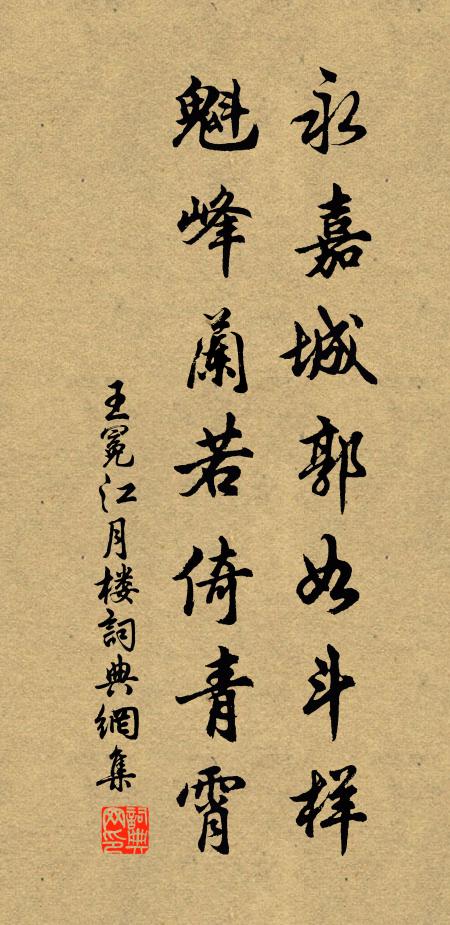 永嘉城郭如斗样
魁峰蘭若倚青霄
王冕江月楼詞典網集
詞典网印